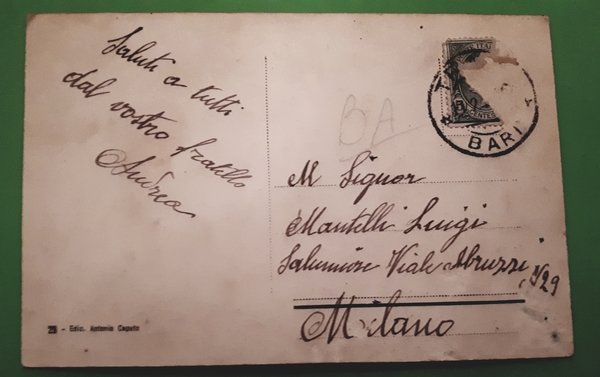 Saluti a tutti
dal vostro fratello
Andrea
BA
BARI
M Signor
Mantelli Luigi
Salumiere Viale Abruzzi N29
Milano
29 - Ediz. Antonio Caputo